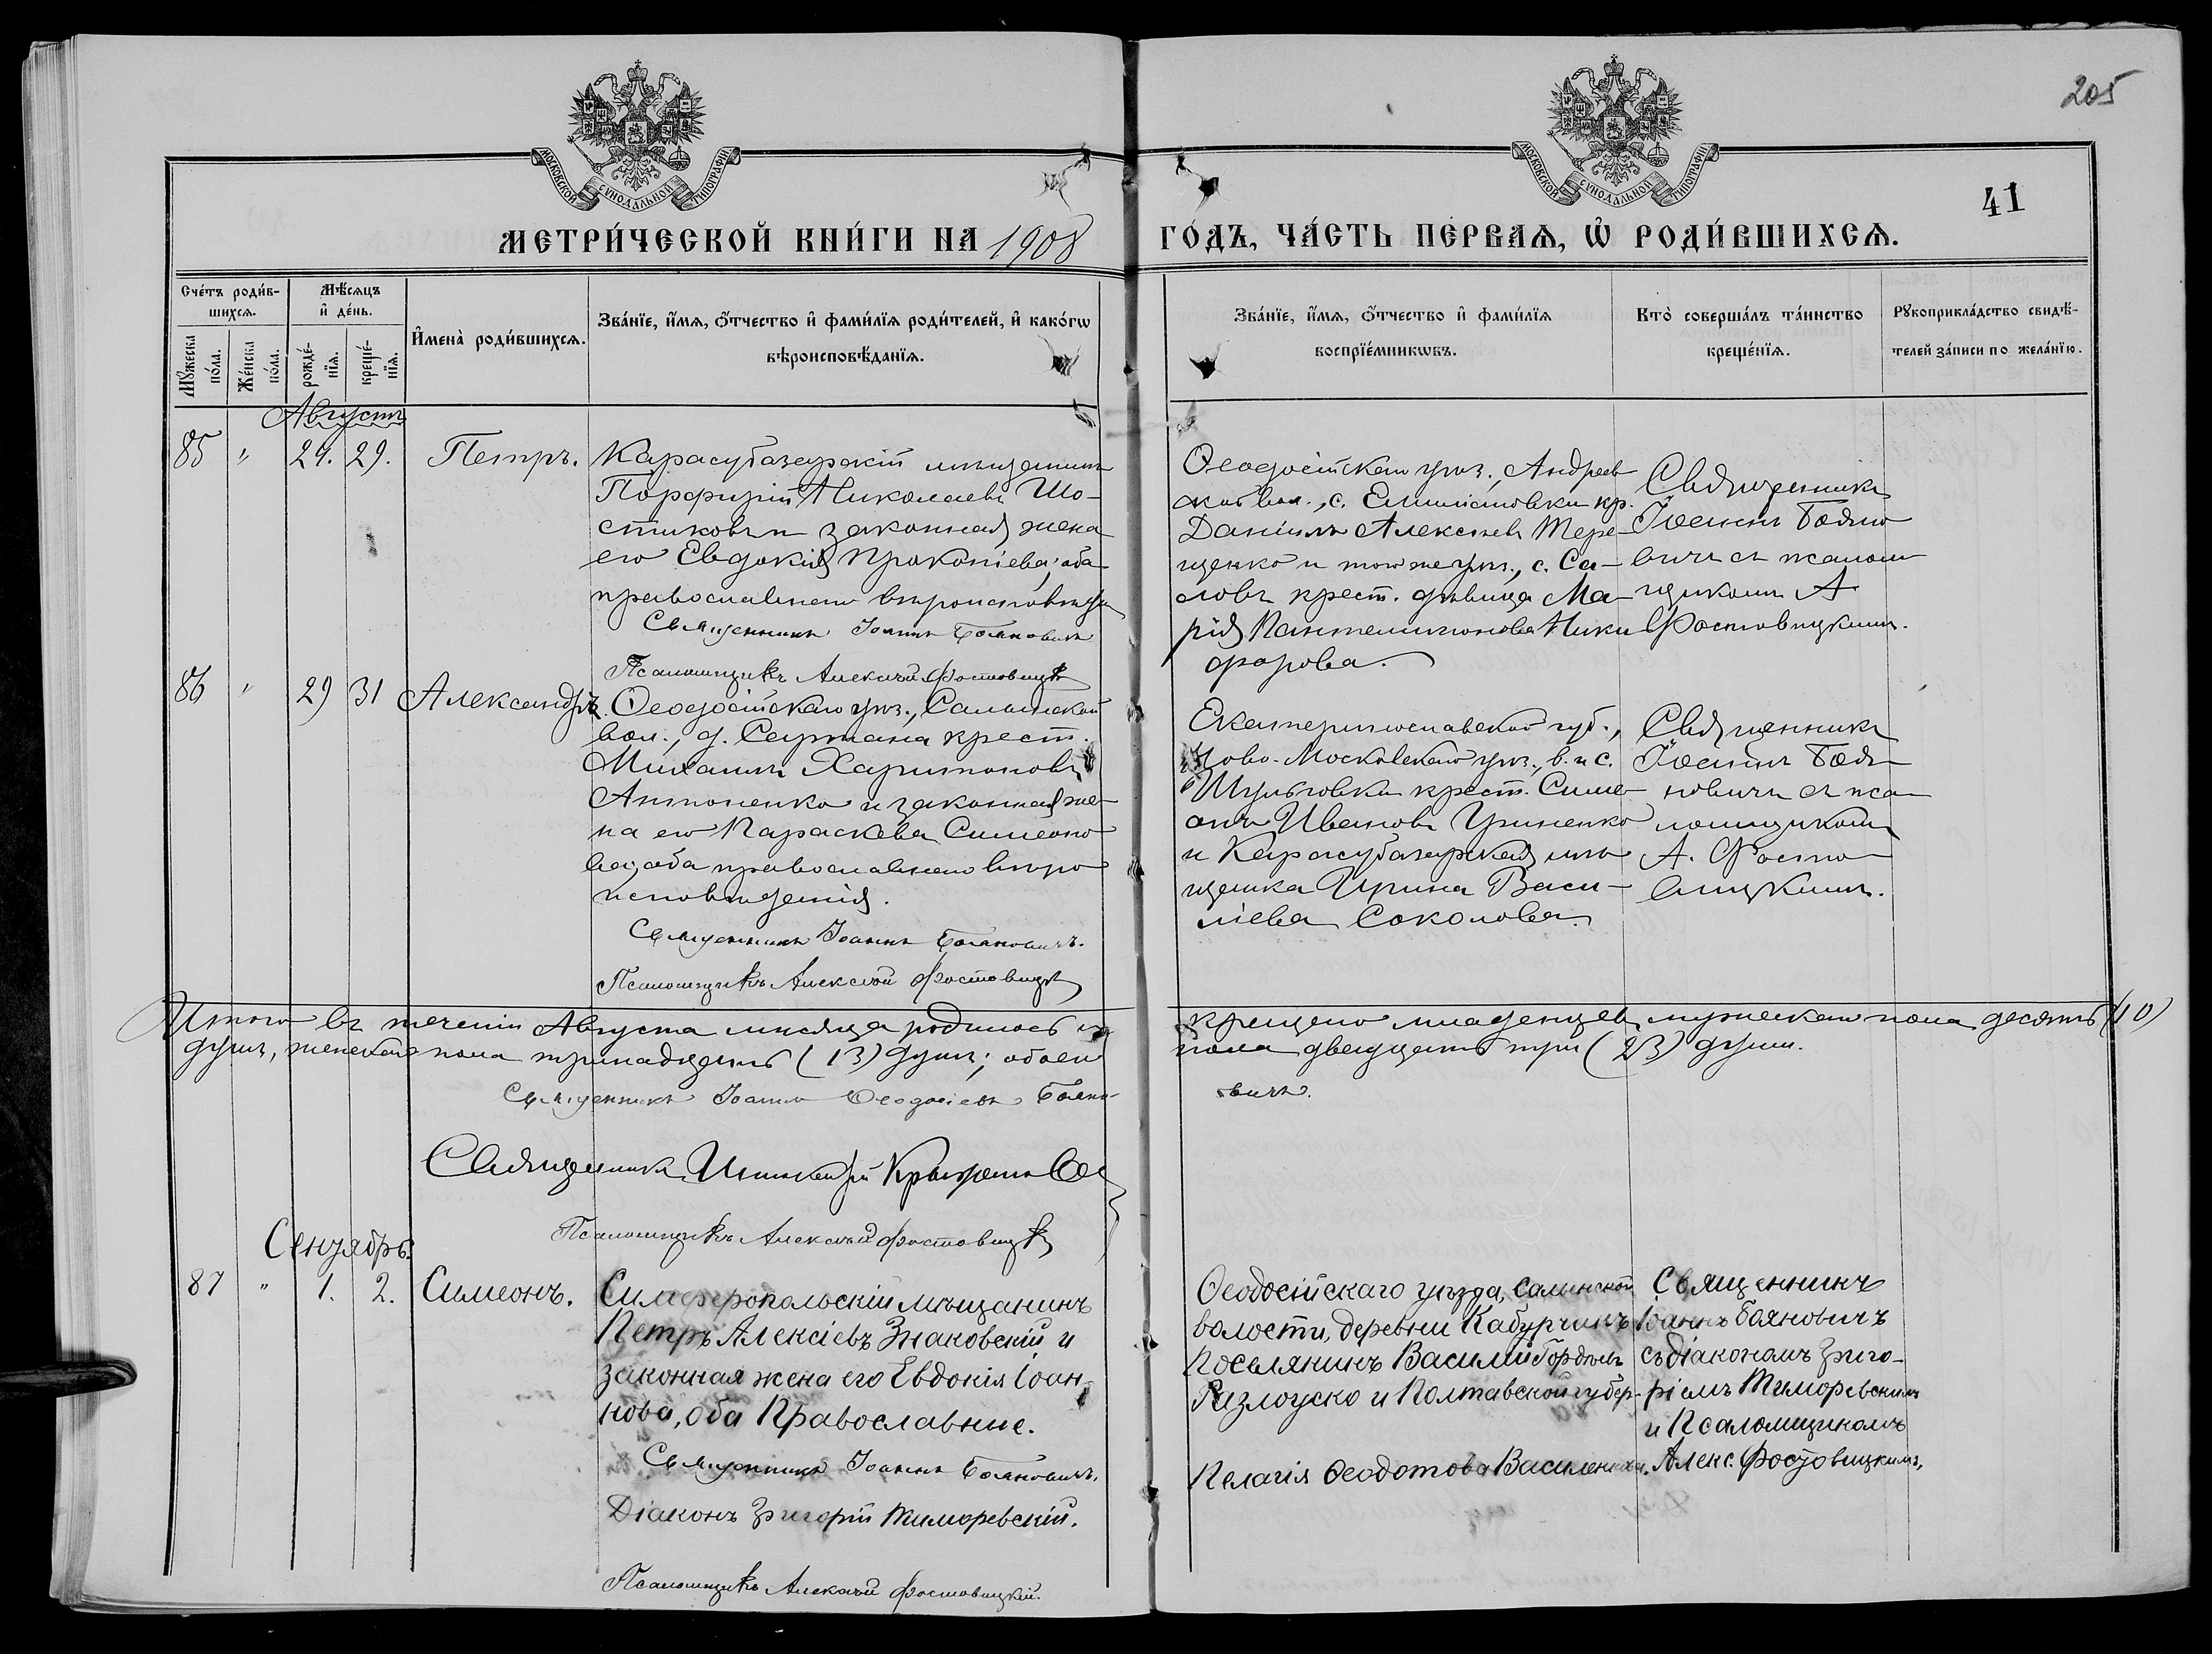 205
МОСКОВСКОЙ СѴНОДАЛЬНОЙ ТИПОГРАФІИ
МОСКОВСКОЙ СѴНОДАЛЬНОЙ ТИПОГРАФІИ
41
МЕТРИ́ЧЕСКОЙ КНИ́ГИ НА 1908 ГО́ДЪ, ЧА́СТЬ ПЕ́РВАѦ, Ѡ҆ РОДИ́ВШИХСѦ.
Сче́тъ роди́в-
шихсѧ.
Мѣ́сѧцъ
и҆ де́нь.
Мꙋ́жеска
по́ла.
Же́нска
по́ла.
рожде́-
нїѧ.
креще́-
нїѧ.
И҆мена̀ роди́вшихсѧ.
Зва́нїе, и҆́мѧ, ѻ҆́тчество и҆ фами́лїѧ роди́телей, и҆ како́гѡ
вѣроисповѣ́данїѧ.
Зва́нїе, и҆́мѧ, ѻ҆́тчество и҆ фами́лїѧ
воспрїе́мникѡвъ.
Кто̀ соверша́лъ та́инство
креще́нїѧ.
Рꙋкоприкла́дство свидѣ́-
телей за́писи по жела́нїю.
Августъ
85 " 24. 29. Петръ.
Карасубазарскій мѣщанинъ
Порфирій Николаевъ Шо-
стиковъ и законная жена
его Евдокія Прокопіева, оба
православнаго вѣроисповѣда
Священникъ Іоаннъ Бояновичъ
Псаломщикъ Алексѣй Фостовицкій
Ѳеодосійскаго уѣз., Андреев
ской вол., с. кр.
Даніилъ Алексѣевъ Тере-
щенко и того же уѣз., с. Са-
ловъ крест. дѣвица Ма-
рія Пантелимонова Ники
форова.
Священникъ
Іоаннъ Бояно
вичъ съ псалом
щикомъ А
Фостовицкимъ.
86 " 29 31 Александръ.
Ѳеодосійскаго уѣз., Салынской
вол., д. Сартана крест.
Михаилъ Харитоновъ
Антоненко и законная же-
на его Параскева Симеоно
ва, оба православнаго вѣро
исповѣданія.
Священникъ Іоаннъ Бояновичъ.
Псаломщикъ Алексѣй Фостовицкій
Екатеринославской губ.,
Ново-Московскаго уѣз., в. и с.
крест. Симе-
онъ Ивановъ Гриненко
и Карасубазарская мѣ
щанка Ирина Васи-
ліева Соколова.
Священникъ
Іоаннъ Боя-
новичъ съ пса
ломщикомъ
А. Фосто-
вицкимъ.
Итого въ теченіи Августа мѣсяца родилось и крещено младенцевъ мужескаго пола десять (10)
душъ, женскаго пола тринадцать (13) душъ; обоего пола двадцать три (23) души.
Священникъ Іоаннъ Ѳеодосіевъ Бояно-
вичъ.
Священникъ
Псаломщикъ Алексѣй Фостовицкій
Сентябрь.
87 " 1. 2. Симеонъ.
Симферопольскій мѣщанинъ
Петръ Алексіевъ Знаковскій и
законная жена его Евдокія Іоан-
нова, оба Православные.
Священникъ Іоаннъ Бояновичъ.
Діаконъ Григорій Тиморевскій.
Псаломщикъ Алексѣй Фостовицкій.
Ѳеодосійскаго уѣзда, Салынской
волости, деревни Кабурчикъ
Поселянинъ Василій Гордѣевъ
и Полтавской губер-
Пелагія Ѳеодотова
Священникъ
Іоаннъ Бояновичъ
съ діакономъ Григо-
ріемъ Тиморевскимъ
и Псаломщикомъ
Алекс. Фостовицкимъ,